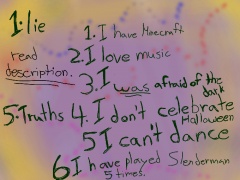 1. lie
read
description.
5. Truths
1. I have Minecraft
2. I love music
3. I was afraid of the
dark
4. I don't celebrate
Halloween
5 I can't dance
6 I have played Slenderman
5 times.